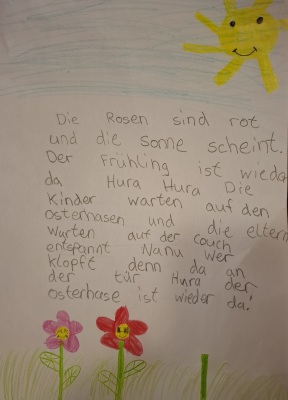 Die Rosen sind rot
und die sonne scheint.
Der Frühling ist wieder
da Hura Hura Die
Kinder warten auf den
osterhasen und die eltern
warten auf der couch
entspannt Nanu wer
klopft denn da an
der tür Hura der
osterhase ist wieder da!